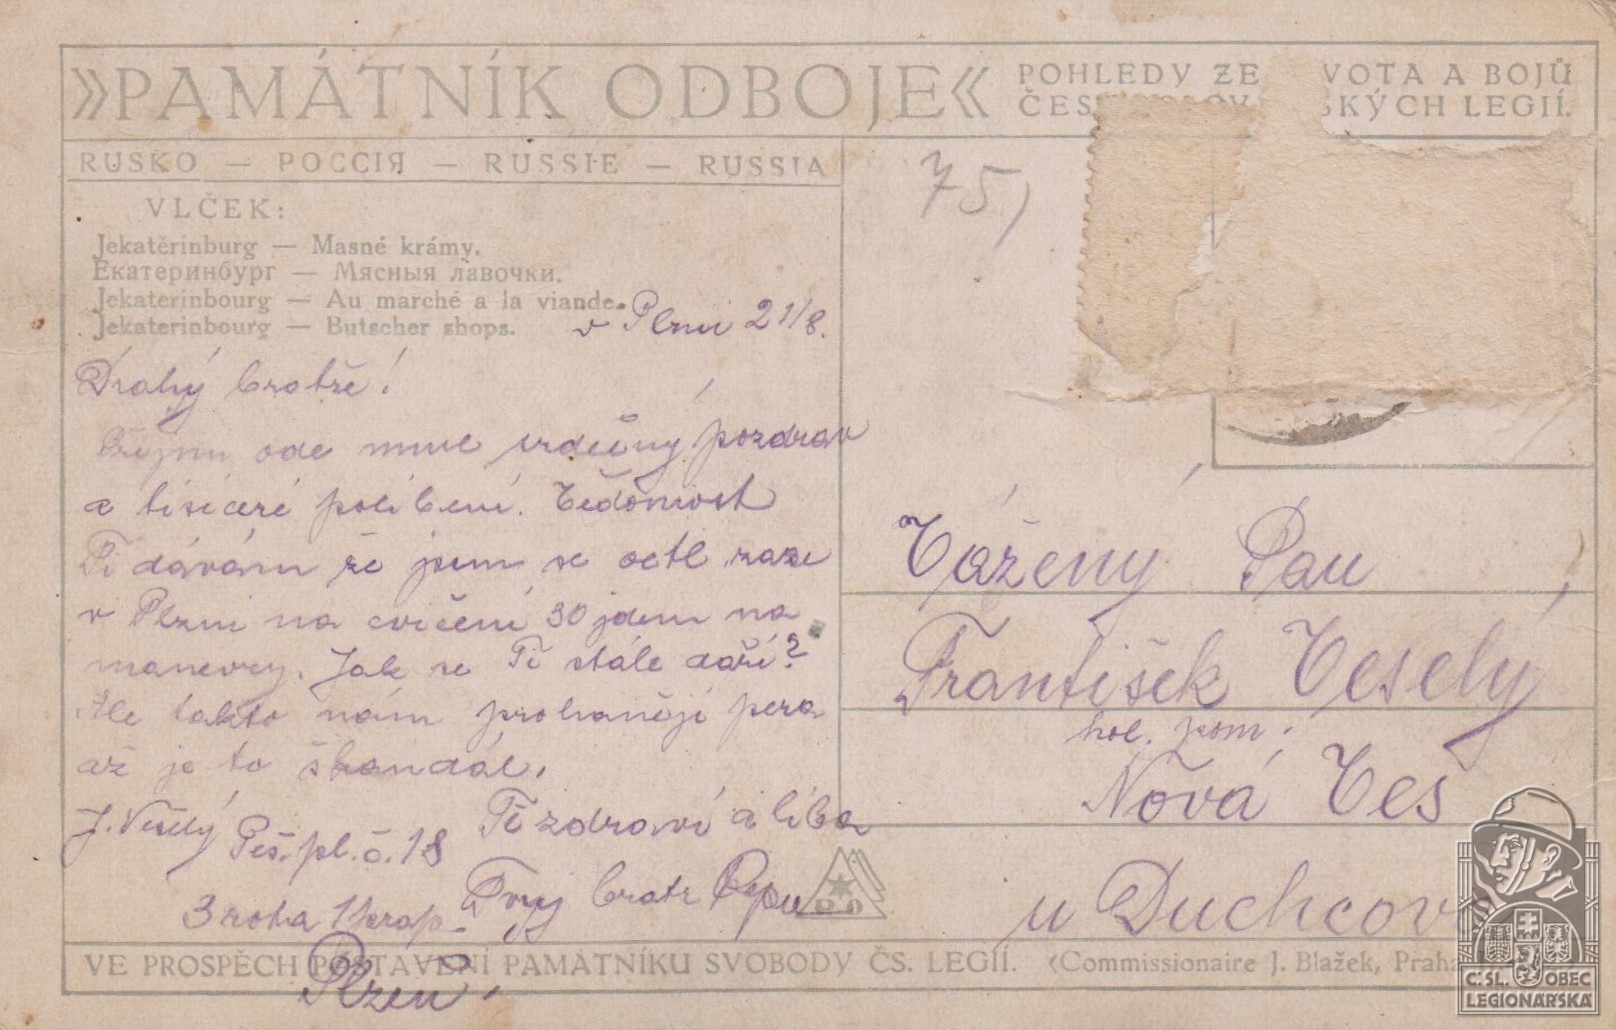 »PAMÁTNÍK ODBOJE«
POHLEDY ZE VOTA A BOJŮ
ČES SKÝCH LEGIÍ.
RUSKO — РОССІЯ — RUSSIE — RUSSIA
VLČEK:
Jekatěrinburg — Masné krámy.
Екатеринбург — Мясныя лавочки.
Jekaterinbourg — Au marché a la viande.
Jekaterinbourg — Butscher shops.
75)
v Plzni 21/8.
Drahý bratře!
ode mne srdečný pozdrav
a tisíceré políbení.
Ti dávám že jsem se octl zase
v Plzni na cvičení 30 jdem na
manevry. Jak se Ti stále daří?
Ale takto nám prohánějí pera
až je to škandál.
Tě zdraví a líbá
Tvůj bratr Pepa
J. Veselý
Pěš. pl. č. 18
3 rota 1 prap.
Plzeň
Vážený Pan
František Veselý
hol. pom.
Nová Ves
u Duchcova
VE PROSPĚCH POSTAVENÍ PAMÁTNÍKU SVOBODY ČS. LEGIÍ. «Commissionaire J. Blažek, Praha
Č.SL. OBEC
LEGIONÁŘSKÁ